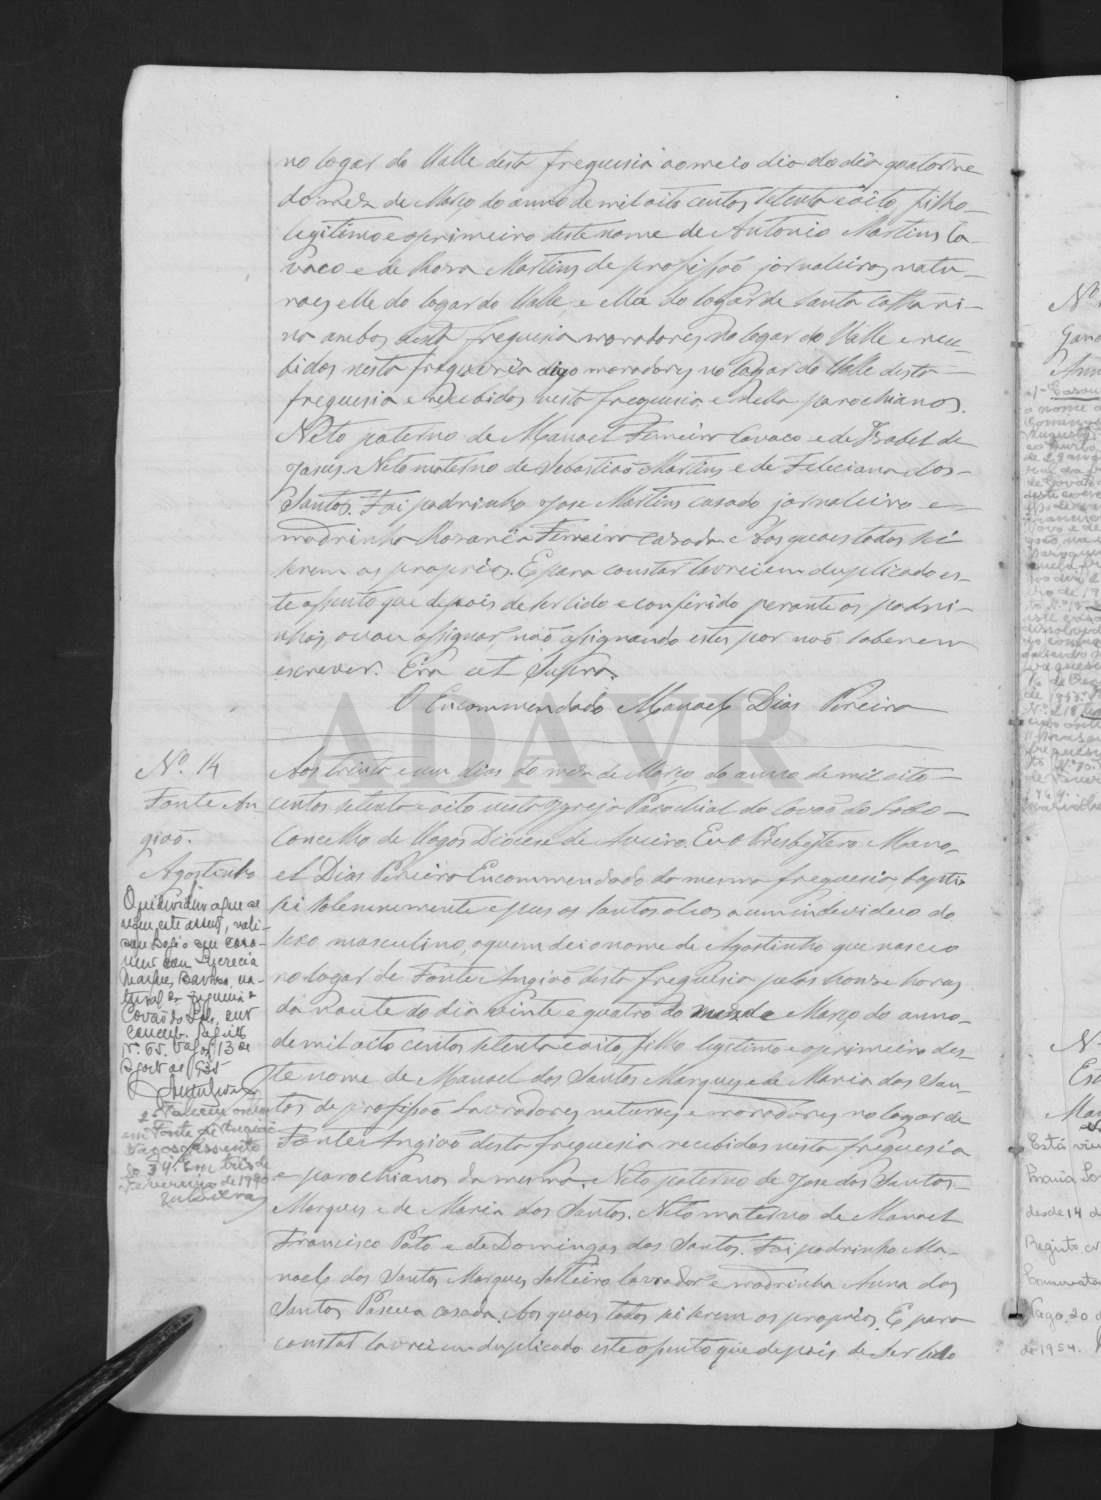 no logar do Valle desta freguesia ao meio dia do dia quatorze
do mez de Março do anno de mil oito centos setenta e oito, filho
legitimo e o primeiro deste nome de Antonio Martins Ca-
vaco e de Roza Martins de profissão jornaleiros natu-
raes elle do logar do Valle, e ella do logar de Santa Catthari-
na ambos desta freguesia moradores no logar do Valle e rece-
bidos nesta freguesia digo moradores no logar do Valle desta
freguesia e recebidos nesta freguesia e della parochianos.
Neto paterno de Manoel Ferreira Cavaco e de Izabel de
Jesus. Neto materno de Sebastião Martins e de Feleciana dos
Santos. Foi padrinho Jose Martins casado jornaleiro e
madrinha Rozaria Ferreira casada. Aos quaes todos hi
serem os proprios. E para constar lavrei em duplicado es-
te assento que depois de ser lido e conferido perante os padri-
nhos, o vou assignar, não assignando estes por não saberem
escrever. Era ut Supra.
O Encommendado Manoel Dias Pereira
ADAVR
Nº 14
Fonte An
gião.
Agostinho
Aos trinta e um dias do mez de Março do anno de mil oito
centos setenta e oito nesta Igreja Parochial do Covão do Lobo
Concelho de Vagos Diocese de Aveiro. Eu o Presbytero Mano-
el Dias Pereira Encommendado da mesma freguesia, baptis
ei solemnemente e pus os Santos oleos a um individuo do
sexo masculino, a quem dei o nome de Agostinho que nasceo
no logar de Fonte Angião desta freguesia pelas honze horas
da noute do dia vinte e quatro do mez de Março do anno
de mil oito centos setenta e oito filho legitimo e o primeiro des-
te nome de Manoel dos Santos Marques e de Maria dos San-
tos de profissão Lavradores naturaes e moradores no logar de
Fonte Angião desta freguesia recebidos nesta freguesia
e parochianos da mesma. Neto paterno de Jose dos Santos
Marques e de Maria dos Santos. Neto materno de Manoel
Francisco Pato e de Domingas dos Santos. Foi padrinho Ma-
noel dos Santos Marques solteiro lavrador e madrinha Anna dos
Santos Pascua casada. Aos quaes todos hi serem os proprios. E para
constar lavrei em duplicado este assento que depois de ser lido
O individuo a que se
refere este assento,
casa-
mento com Lucrecia
Marques Barbosa, na-
tural da freguesia de
Covão do Lobo,
Nº 65. Vagos, 13 de
Agosto de 1935
2º Faleceu
em Fonte de Angião
Vagos, Assento
Nº 34. Em três de
Fevereiro de 19
Nº
Está
Maria
desde 14 d
Registo
Conservatoria
Vagos, 20
de 1954.